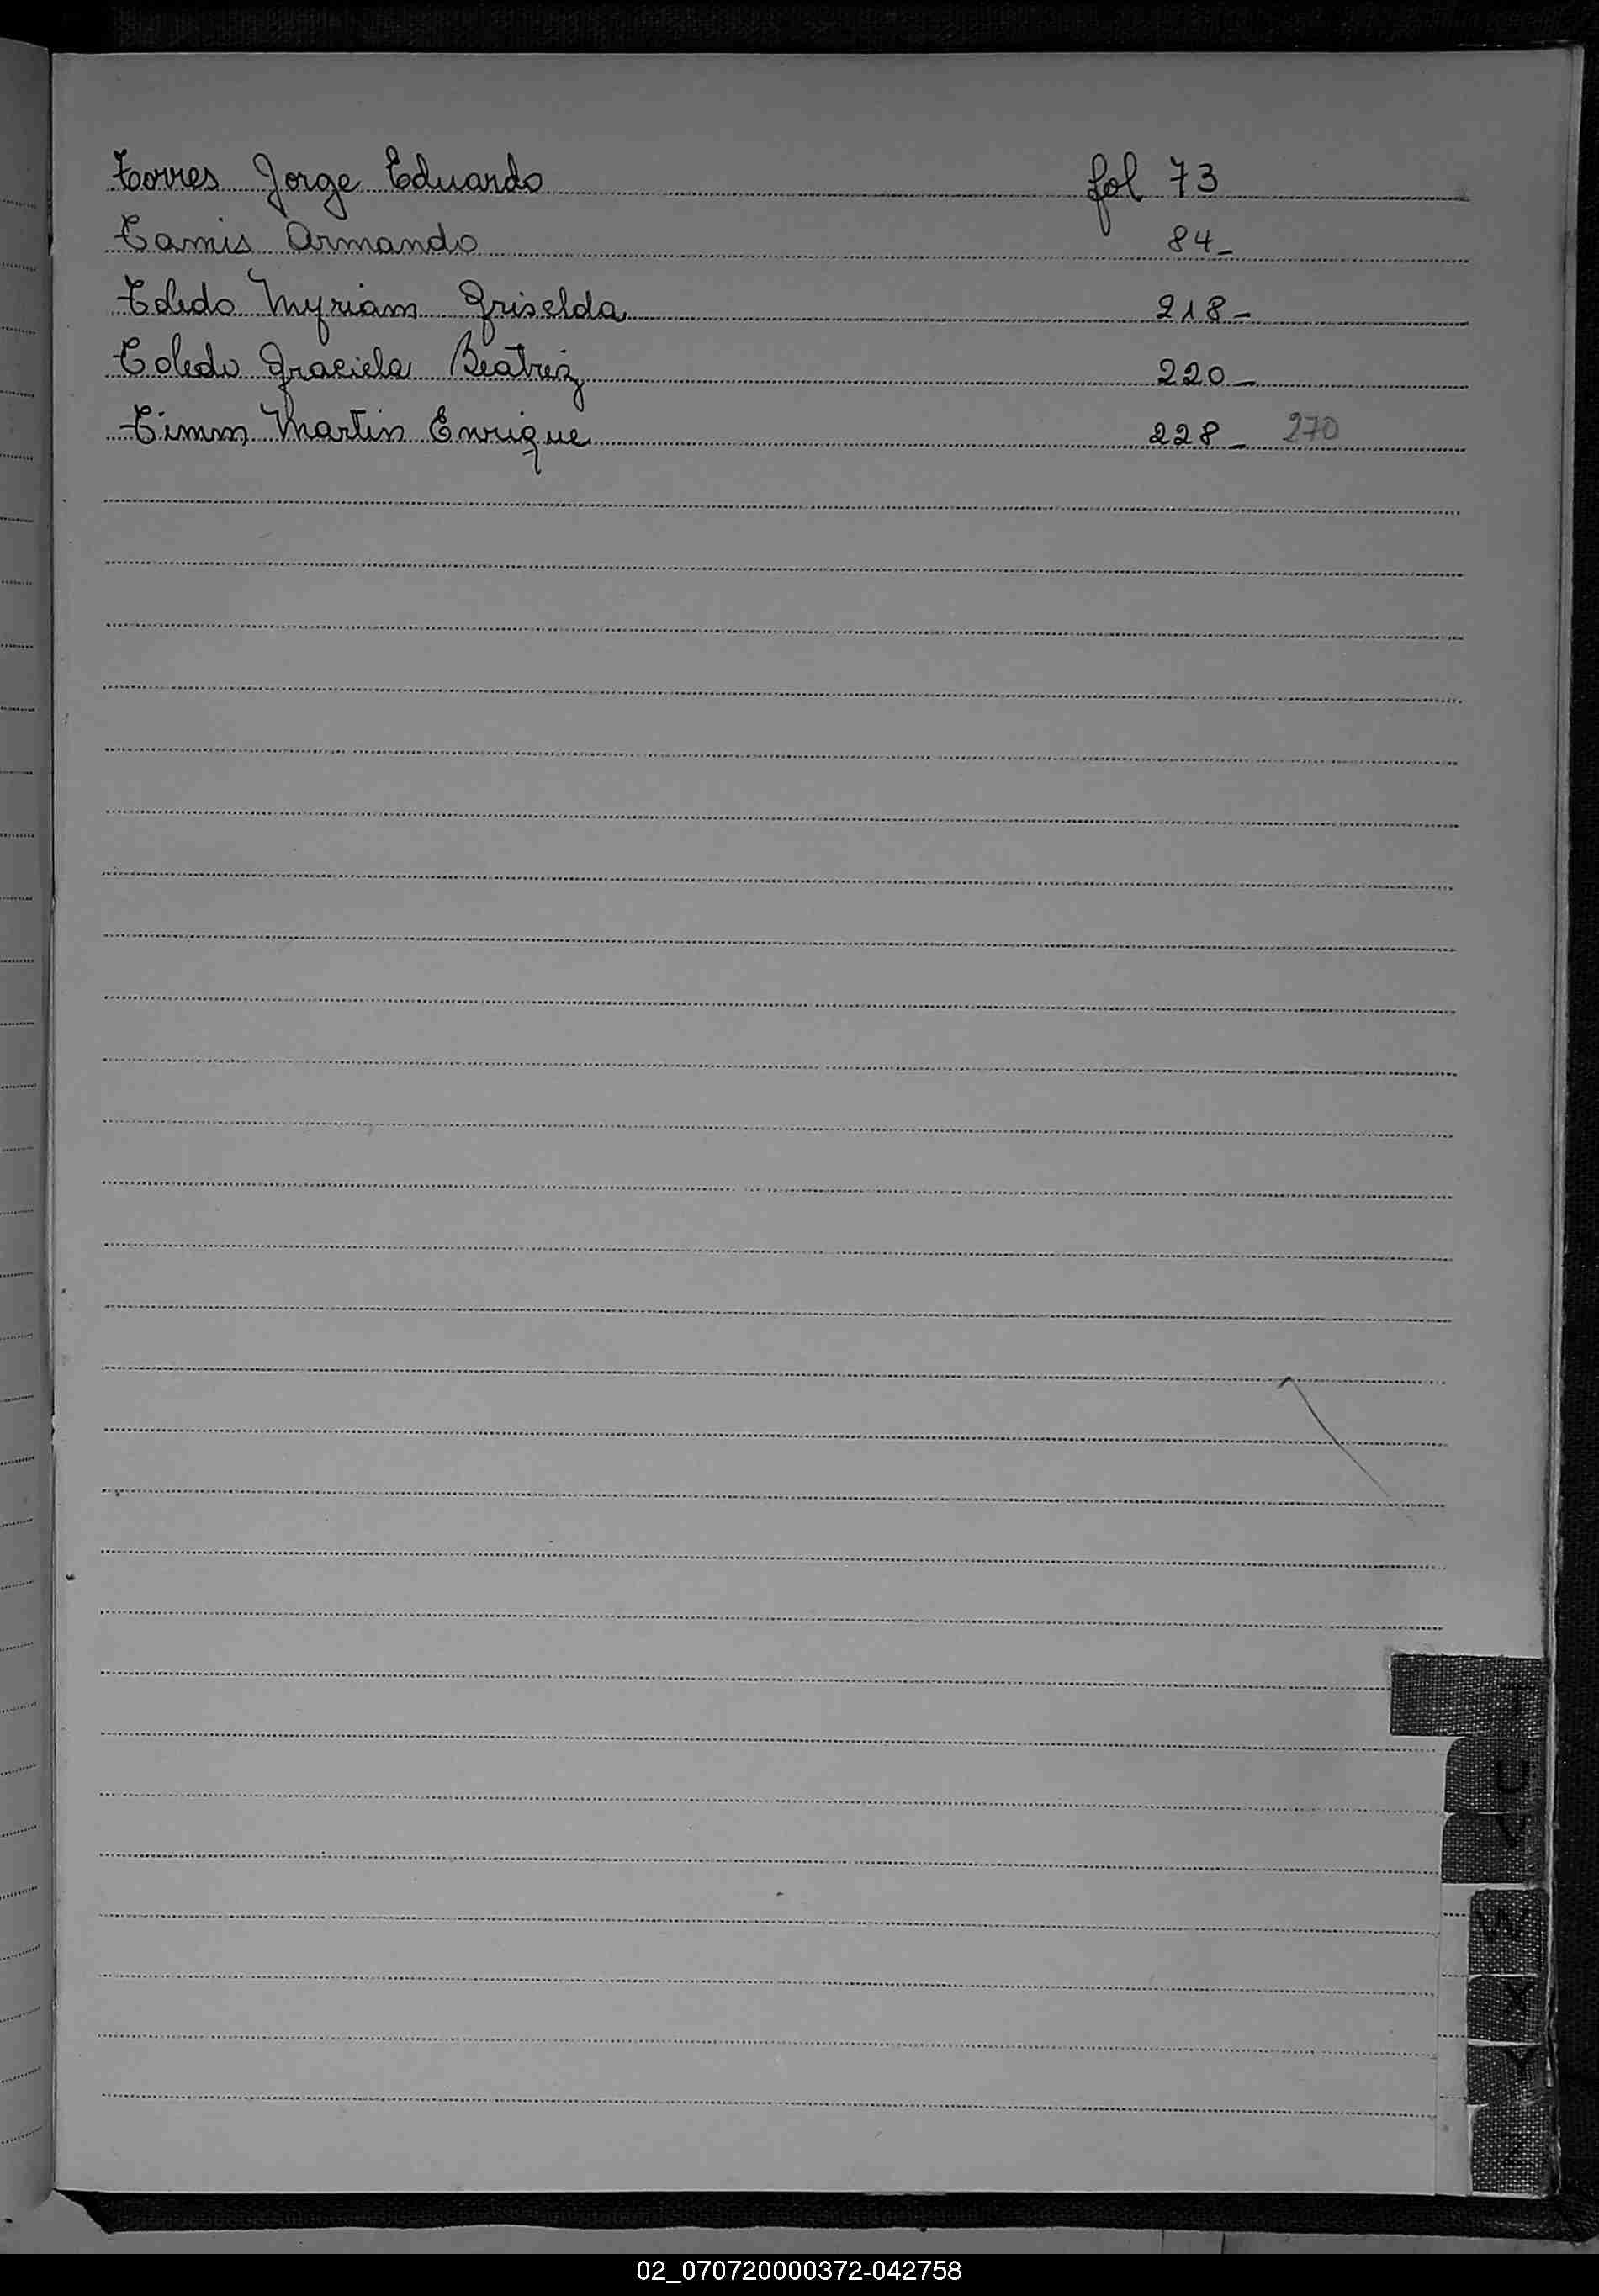 Torres Jorge Eduardo fol 73
Tamis Armando 84-
Toledo Myriam Griselda 218-
Toledo Graciela Beatriz 220-
Timm Martin Enrique 228- 270
T
U
V
W
X
Y
Z
02_070720000372-042758